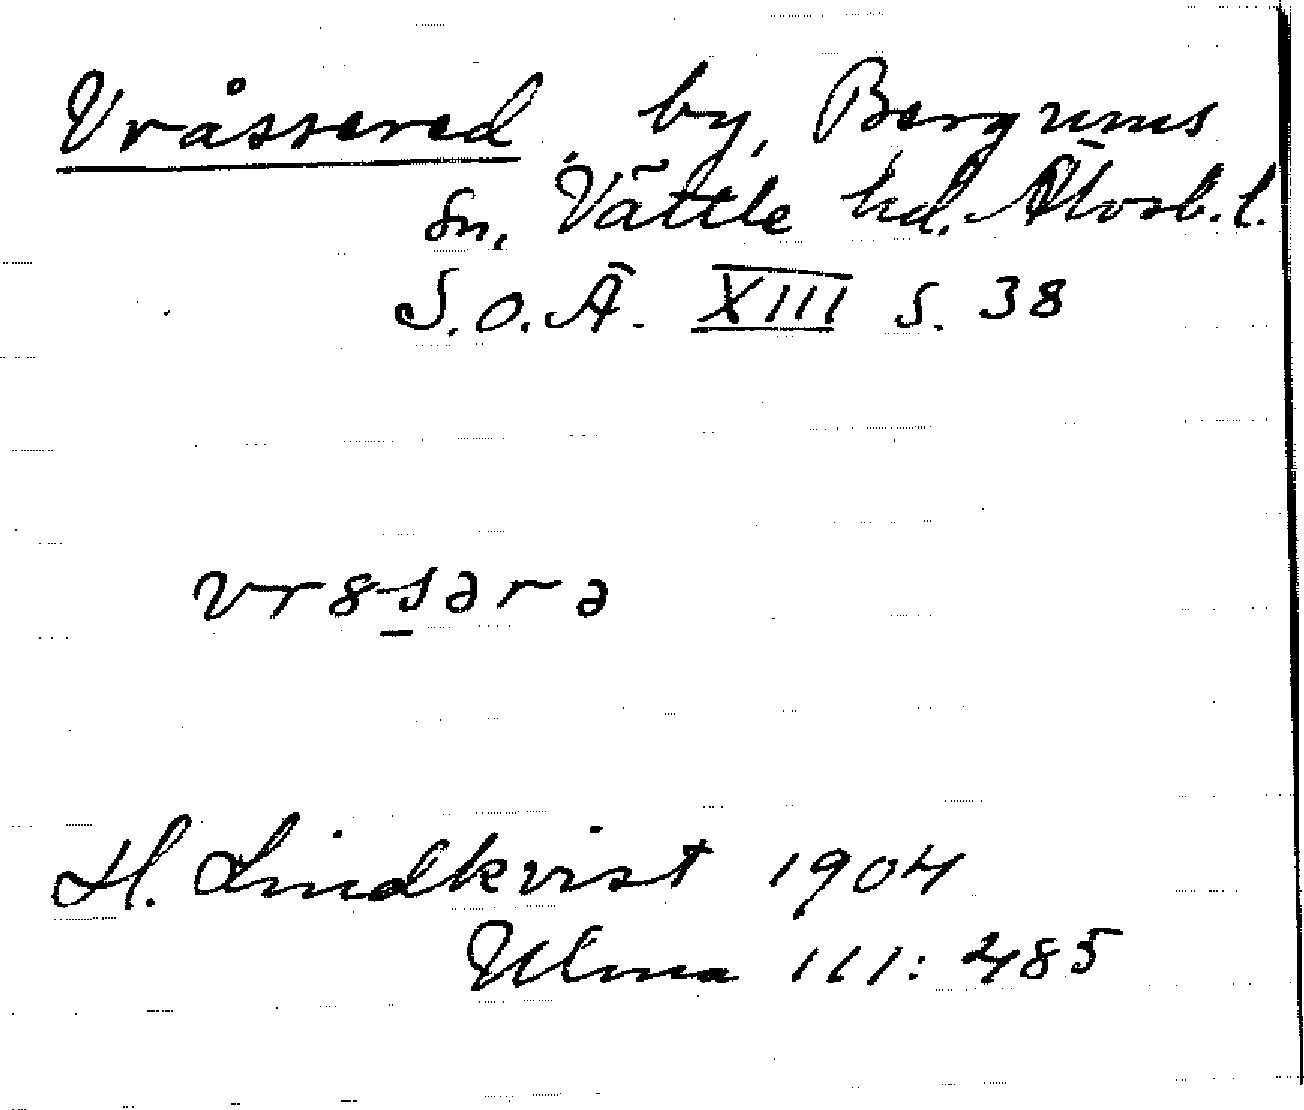 Vråssered, by, Bergums
sn, Vättle hd. Älvsb. l.
S.O.Ä. XIII s. 38
vr8s̲ərə
H. Lindkvist 1904
Ulma 111: 485